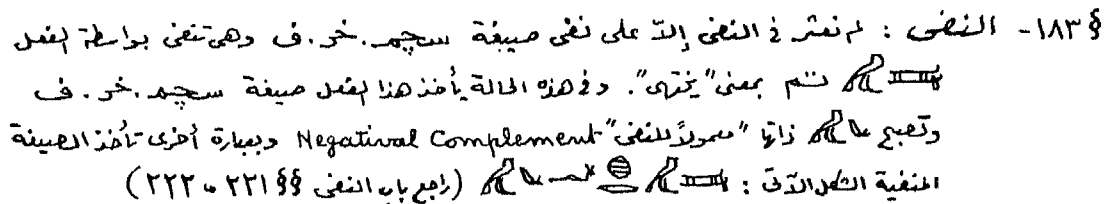 § ١٨٣- النفى : لم نعثر فى النفى إلاّ على نفى صيغة سچم.خر.ف وهى تنفى بواسطة الفعل
𓍿𓅓𓂻 تم بمعنى "ينتهى". وفى هذه الحالة يأخذ هذا الفعل صيغة سچم.خر.ف
وتصبح ذاتها "معمولاً للنفى" Negatival Complement وبعبارة أخرى تأخذ الصيغة
المنفية الشكل الآتى : (راجع باب النفى §§ ٢٢١ ، ٢٢٢)